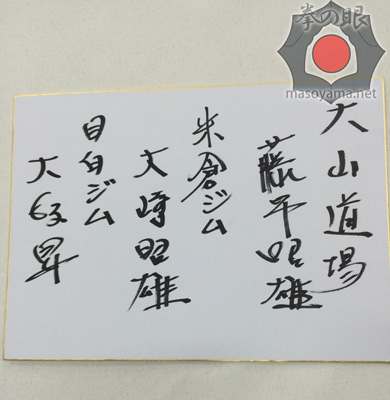 拳の眼
masoyama.net
大山道場
藤平昭雄
米倉ジム
大崎昭雄
目白ジム
大沢昇